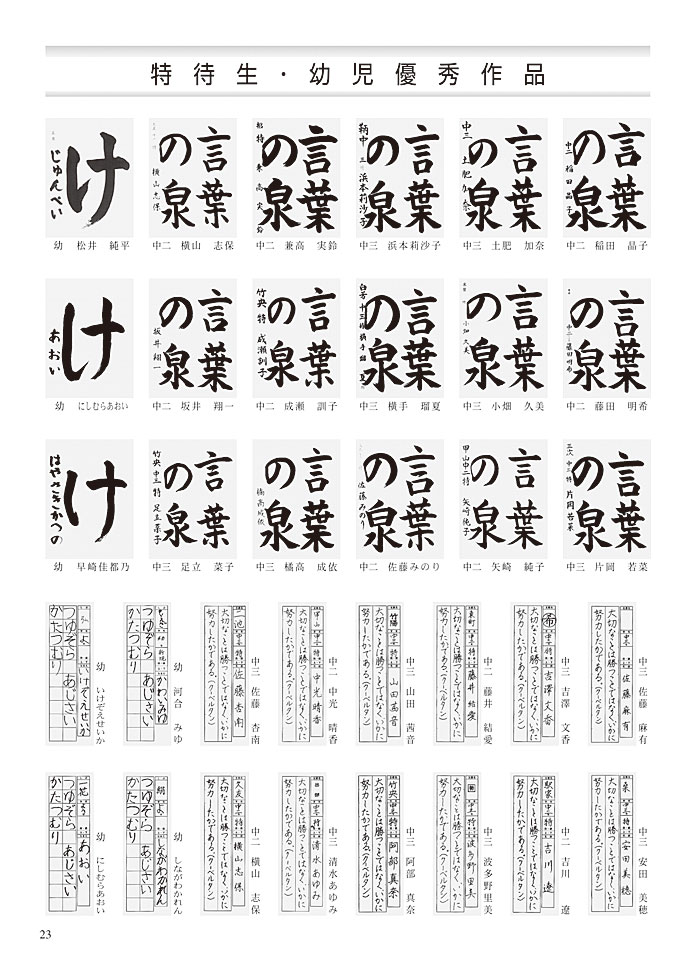 特待生・幼児優秀作品
言葉の泉
中二 稲田 晶子
言葉の泉
中三 土肥 加奈
言葉の泉
中三 浜本莉沙子
言葉の泉
中二 兼高 実鈴
言葉の泉
横山志保
中二 横山 志保
け
じゅんぺい
幼 松井 純平
言葉の泉
中二 藤田 明希
言葉の泉
中三 小畑 久美
言葉の泉
中三 横手 瑠夏
言葉の泉
竹央 特 成瀬訓子
中二 成瀬 訓子
言葉の泉
坂井翔一
中二 坂井 翔一
け
あおい
幼 にしむらあおい
言葉の泉
中三 片岡 若菜
言葉の泉
甲山中二特 矢崎純子
中二 矢崎 純子
言葉の泉
佐藤みのり
中二 佐藤みのり
言葉の泉
橘高成依
中三 橘高 成依
言葉の泉
竹央中三特 足立菜子
中三 足立 菜子
け
はやさきかつの
幼 早崎佳都乃
中三 佐藤 麻有
佐藤麻有
大切なことは勝つことではなく、いかに
努力したかである。(クーベルタン)
中三 吉澤 文香
吉澤文香
大切なことは勝つことではなく、いかに
努力したかである。(クーベルタン)
中二 藤井 結愛
藤井結愛
大切なことは勝つことではなく、いかに
努力したかである。(クーベルタン)
中三 山田 茜音
山田茜音
大切なことは勝つことではなく、いかに
努力したかである。(クーベルタン)
中二 中光 晴香
中光晴香
大切なことは勝つことではなく、いかに
努力したかである。(クーベルタン)
中三 佐藤 杏南
佐藤杏南
大切なことは勝つことではなく、いかに
努力したかである。(クーベルタン)
幼 河合 みゆ
かわいみゆ
つゆぞら あじさい
かたつむり
幼 いけぞえせいか
いけぞえせいか
つゆぞら あじさい
かたつむり
中三 安田 美穂
安田美穂
大切なことは勝つことではなく、いかに
努力したかである。(クーベルタン)
中二 吉川 遼
吉川遼
大切なことは勝つことではなく、いかに
努力したかである。(クーベルタン)
中三 波多野里美
波多野里美
大切なことは勝つことではなく、いかに
努力したかである。(クーベルタン)
中三 阿部 真奈
阿部真奈
大切なことは勝つことではなく、いかに
努力したかである。(クーベルタン)
中三 清水あゆみ
清水あゆみ
大切なことは勝つことではなく、いかに
努力したかである。(クーベルタン)
中二 横山 志保
横山志保
大切なことは勝つことではなく、いかに
努力したかである。(クーベルタン)
幼 しながわかれん
しながわかれん
つゆぞら あじさい
かたつむり
幼 にしむらあおい
あおい
つゆぞら あじさい
かたつむり
23